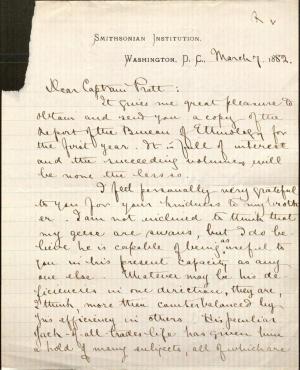 Smithsonian Institution,
Washington, D. C., March 7, 1882.
Dear Captain Pratt:
It gives me great pleasure to
obtain and send you a copy of the
Report of the Bureau of Ethnology for
the first year. It is full of interest
and the succeeding volumes will
be none the less so.
I feel personally very grateful
to you for your kindness to my broth-
er. I am not inclined to think that
my geese are swans, but I do be-
lieve he is capable of being as useful to
you in his present capacity as any
one else. Whatever may be his de-
ficiencies in one direction, they are,
I think, more than counterbalanced by
his efficiency in others. His peculiar
Jack-of-all-trades-life has given him
a hold of many subjects, all of which are